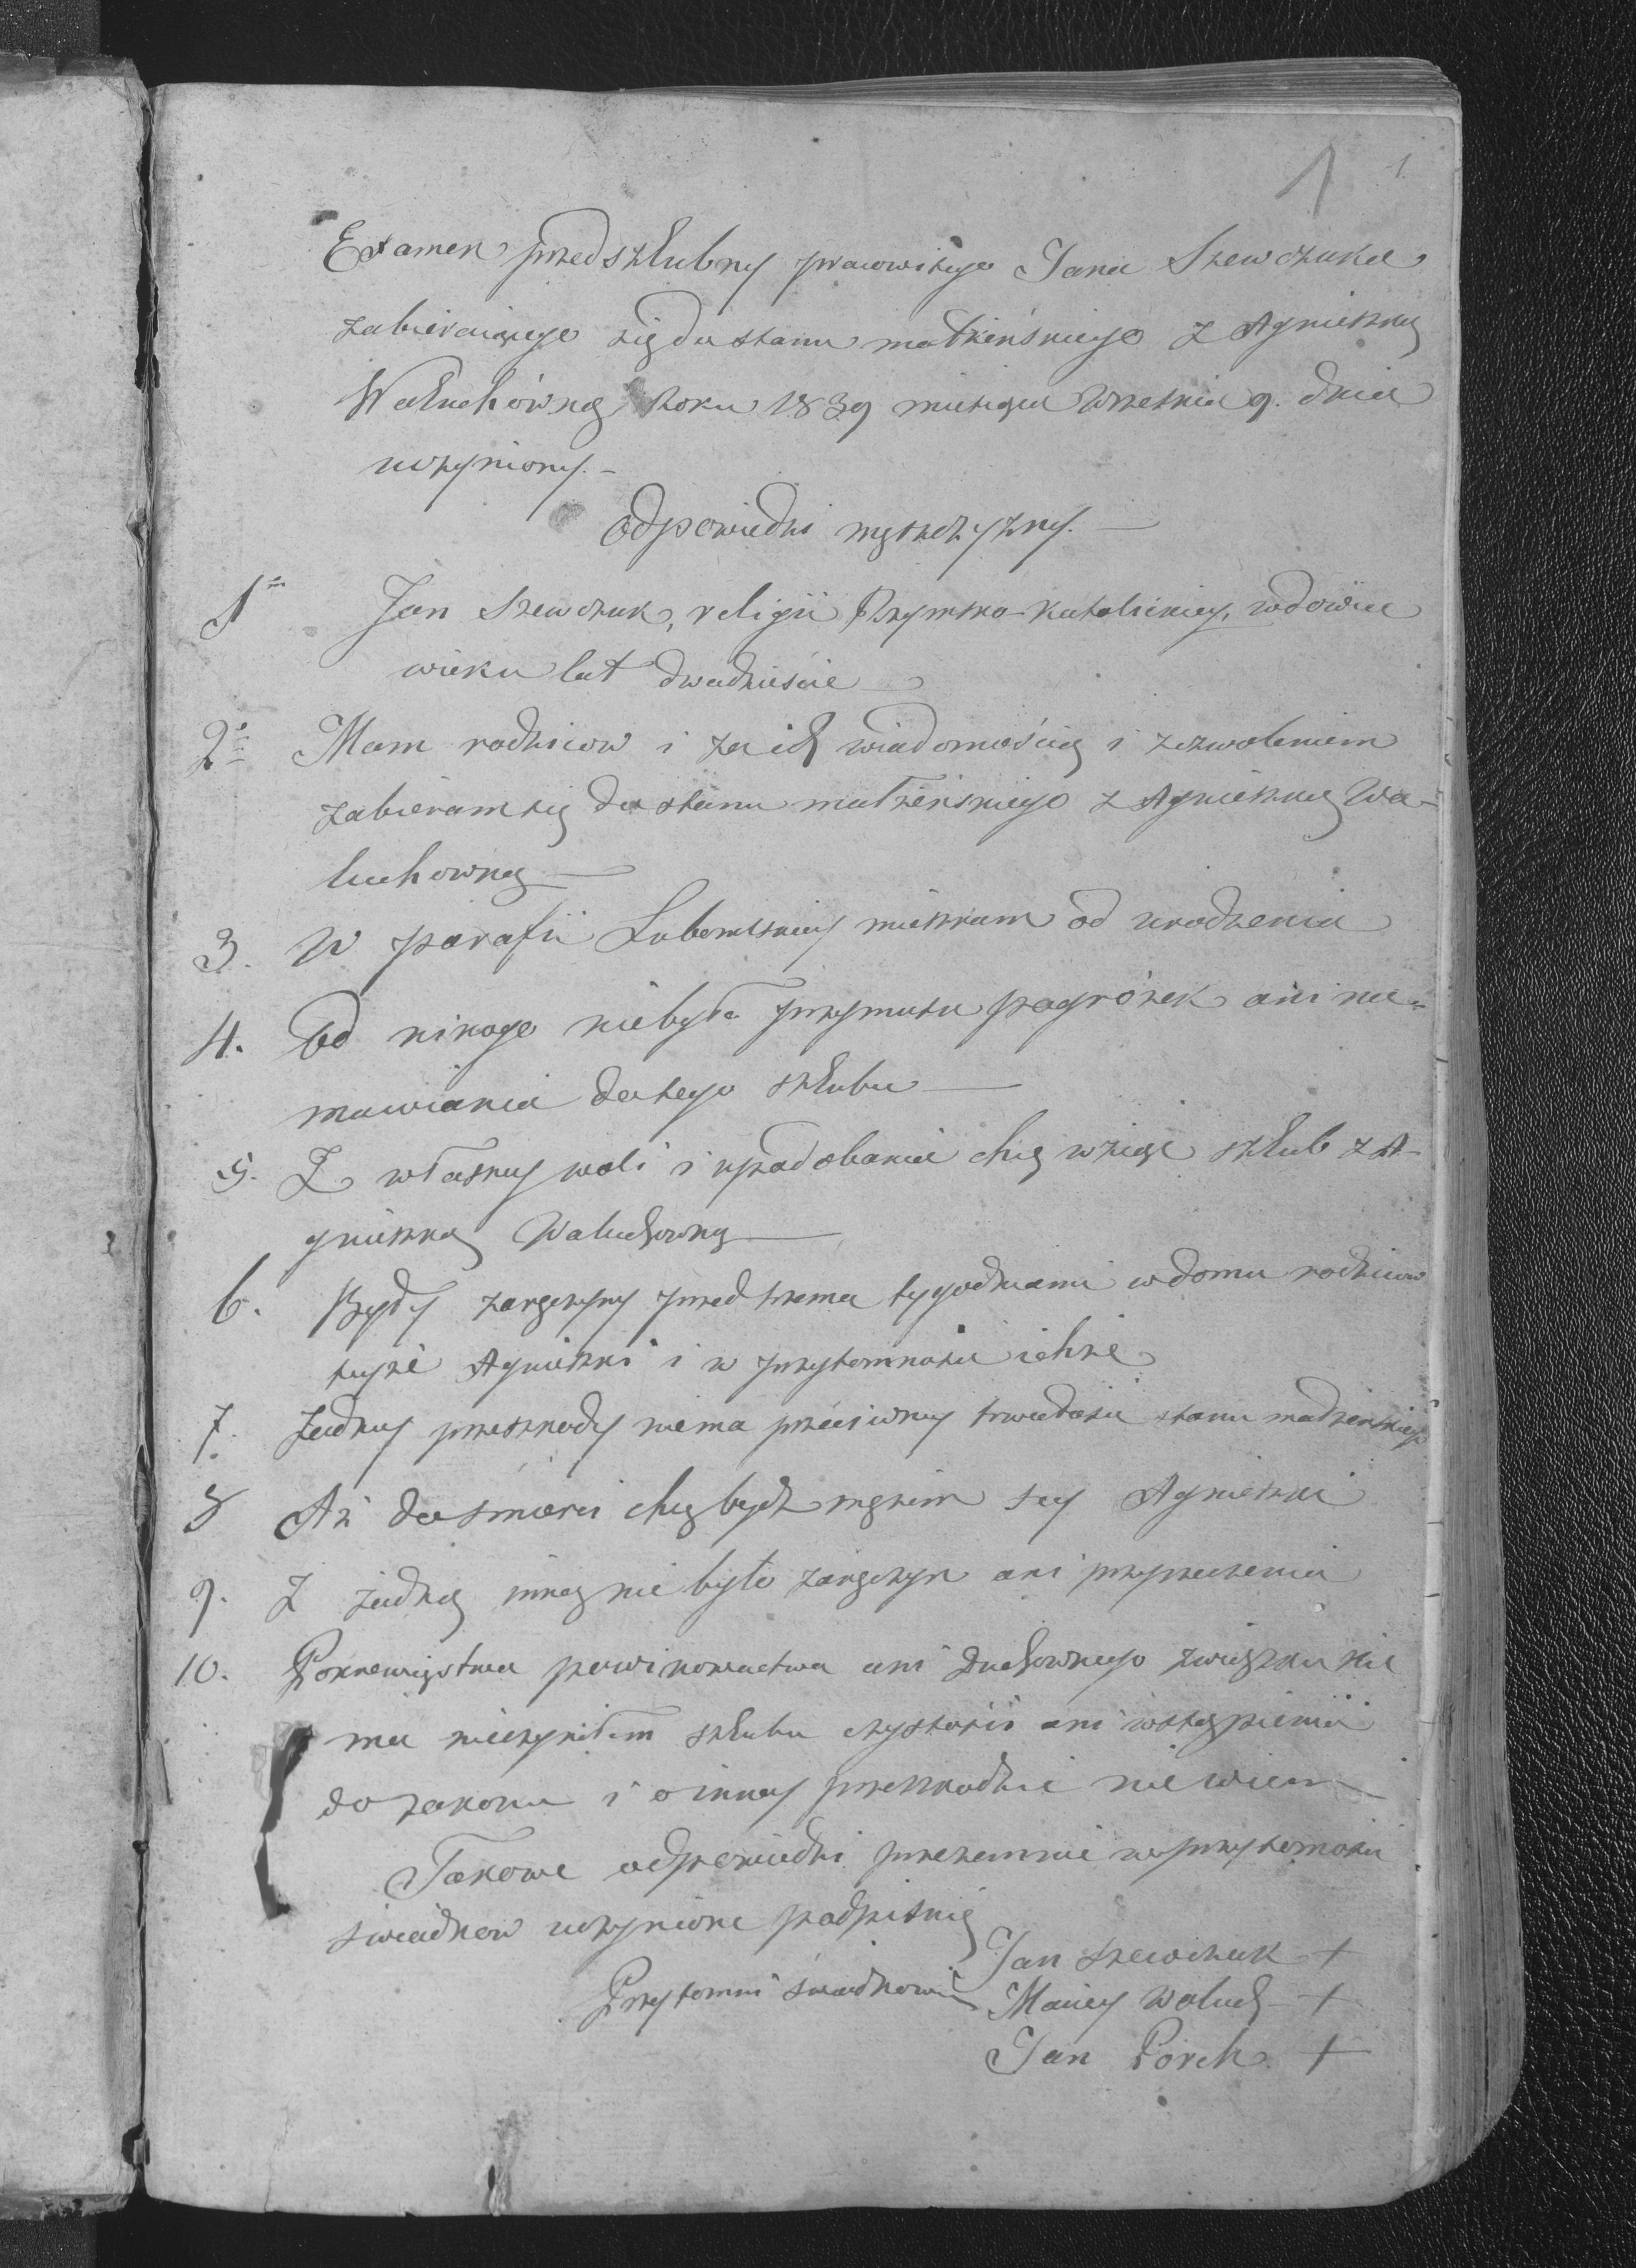 1 1.
Examen przedszlubny pracowitego Jana Szewczuka
zabieraiącego się do stanu małżeńskiego z Agnieszką
Waluchówną Roku 1839 miesiąca Września 9. dnia
uczyniony. –
Odpowiedzi męszczyzny. —
1º Jan Szewczuk, religii Rzymsko-Katolickiey, wdowiec
wieku lat dwadzieście
2º Mam rodziców i za ich wiadomością i zezwoleniem
zabieram się do stanu małżeńskiego z Agnieszką Wa-
luchowną —
3. W parafii Lubomlskiey mieszkam od urodzenia
4. Od nikogo niebyło przymusu pogróżek ani na-
mawiania do tego szlubu —
5. Z własney woli i upodobania chcę wziąść szlub z A-
gnieszką Waluchowną —
6. Były zaręczyny przed trzema tygodniami w domu rodziców
teyże Agnieszki i w przytomności ichże
7. Żadney przeszkody niema przeciwney trwałości stanu małżenskiego
8 Aż do smierci chcę bydz mężem tey Agnieszki
9. Z żadną inną nie było zaręczyn ani przyrzeczenia
10. Pokrewięstwa powinowactwa ani duchownego związku nie
ma nieczyniłem szlubu czystości ani wstąpienia
do zakonu i o inney przeszkodzie nie wiem —
Takowe odpowiedzi przezemnie w przytomności
swiadkow uczynione podpisuię
Jan Szewczuk +
Przytomni swiadkowie Maciey Waluch +
Jan Porch +